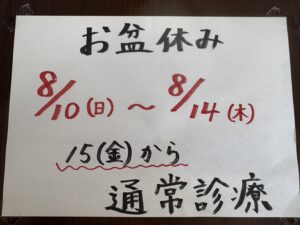 お盆休み
8/10(日)～8/14(木)
15(金)から
通常診療